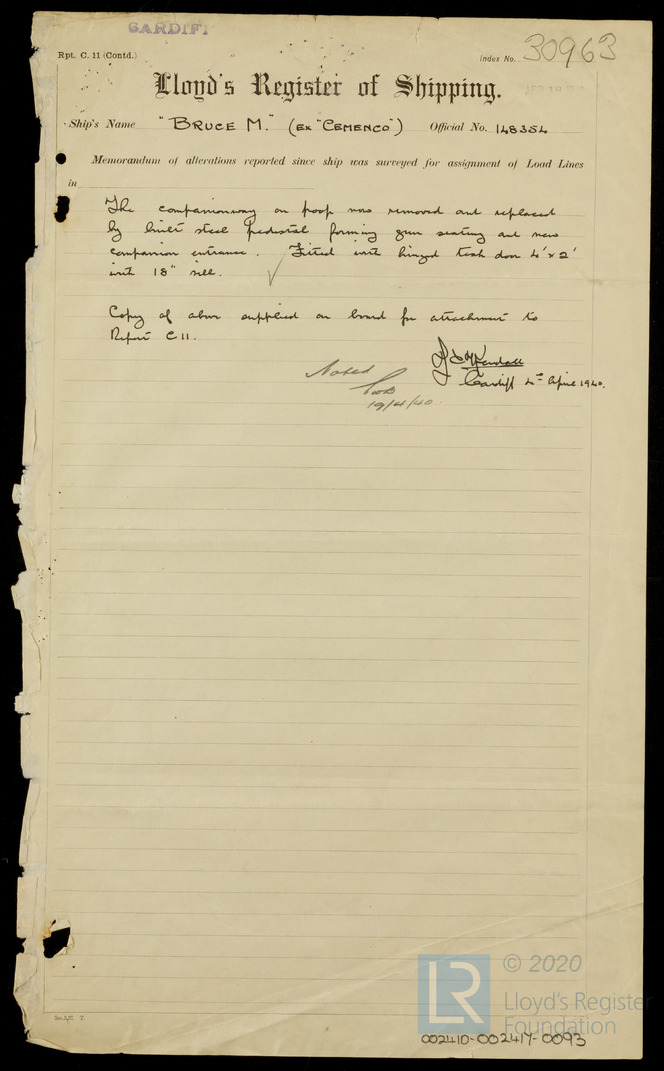 CARDIFF
Rpt. C. 11 (Contd.)
Index No. 30963
Lloyd's Register of Shipping.
Ship's Name "BRUCE M." (EX "CEMENCO") Official No. 148354
Memorandum of alterations reported since ship was surveyed for assignment of Load Lines
in
The companionway on poop now removed and replaced
by built steel pedestal forming gun seating and new
companion entrance. Fitted with hinged teak door 4'x2'
with 18" sill.
Copy of above supplied on board for attachment to
Report C11.
Kendall
Cardiff 4th April 1940.
Noted
19/4/40
© 2020
LR
Lloyd's Register
Foundation
002410-002417-0093